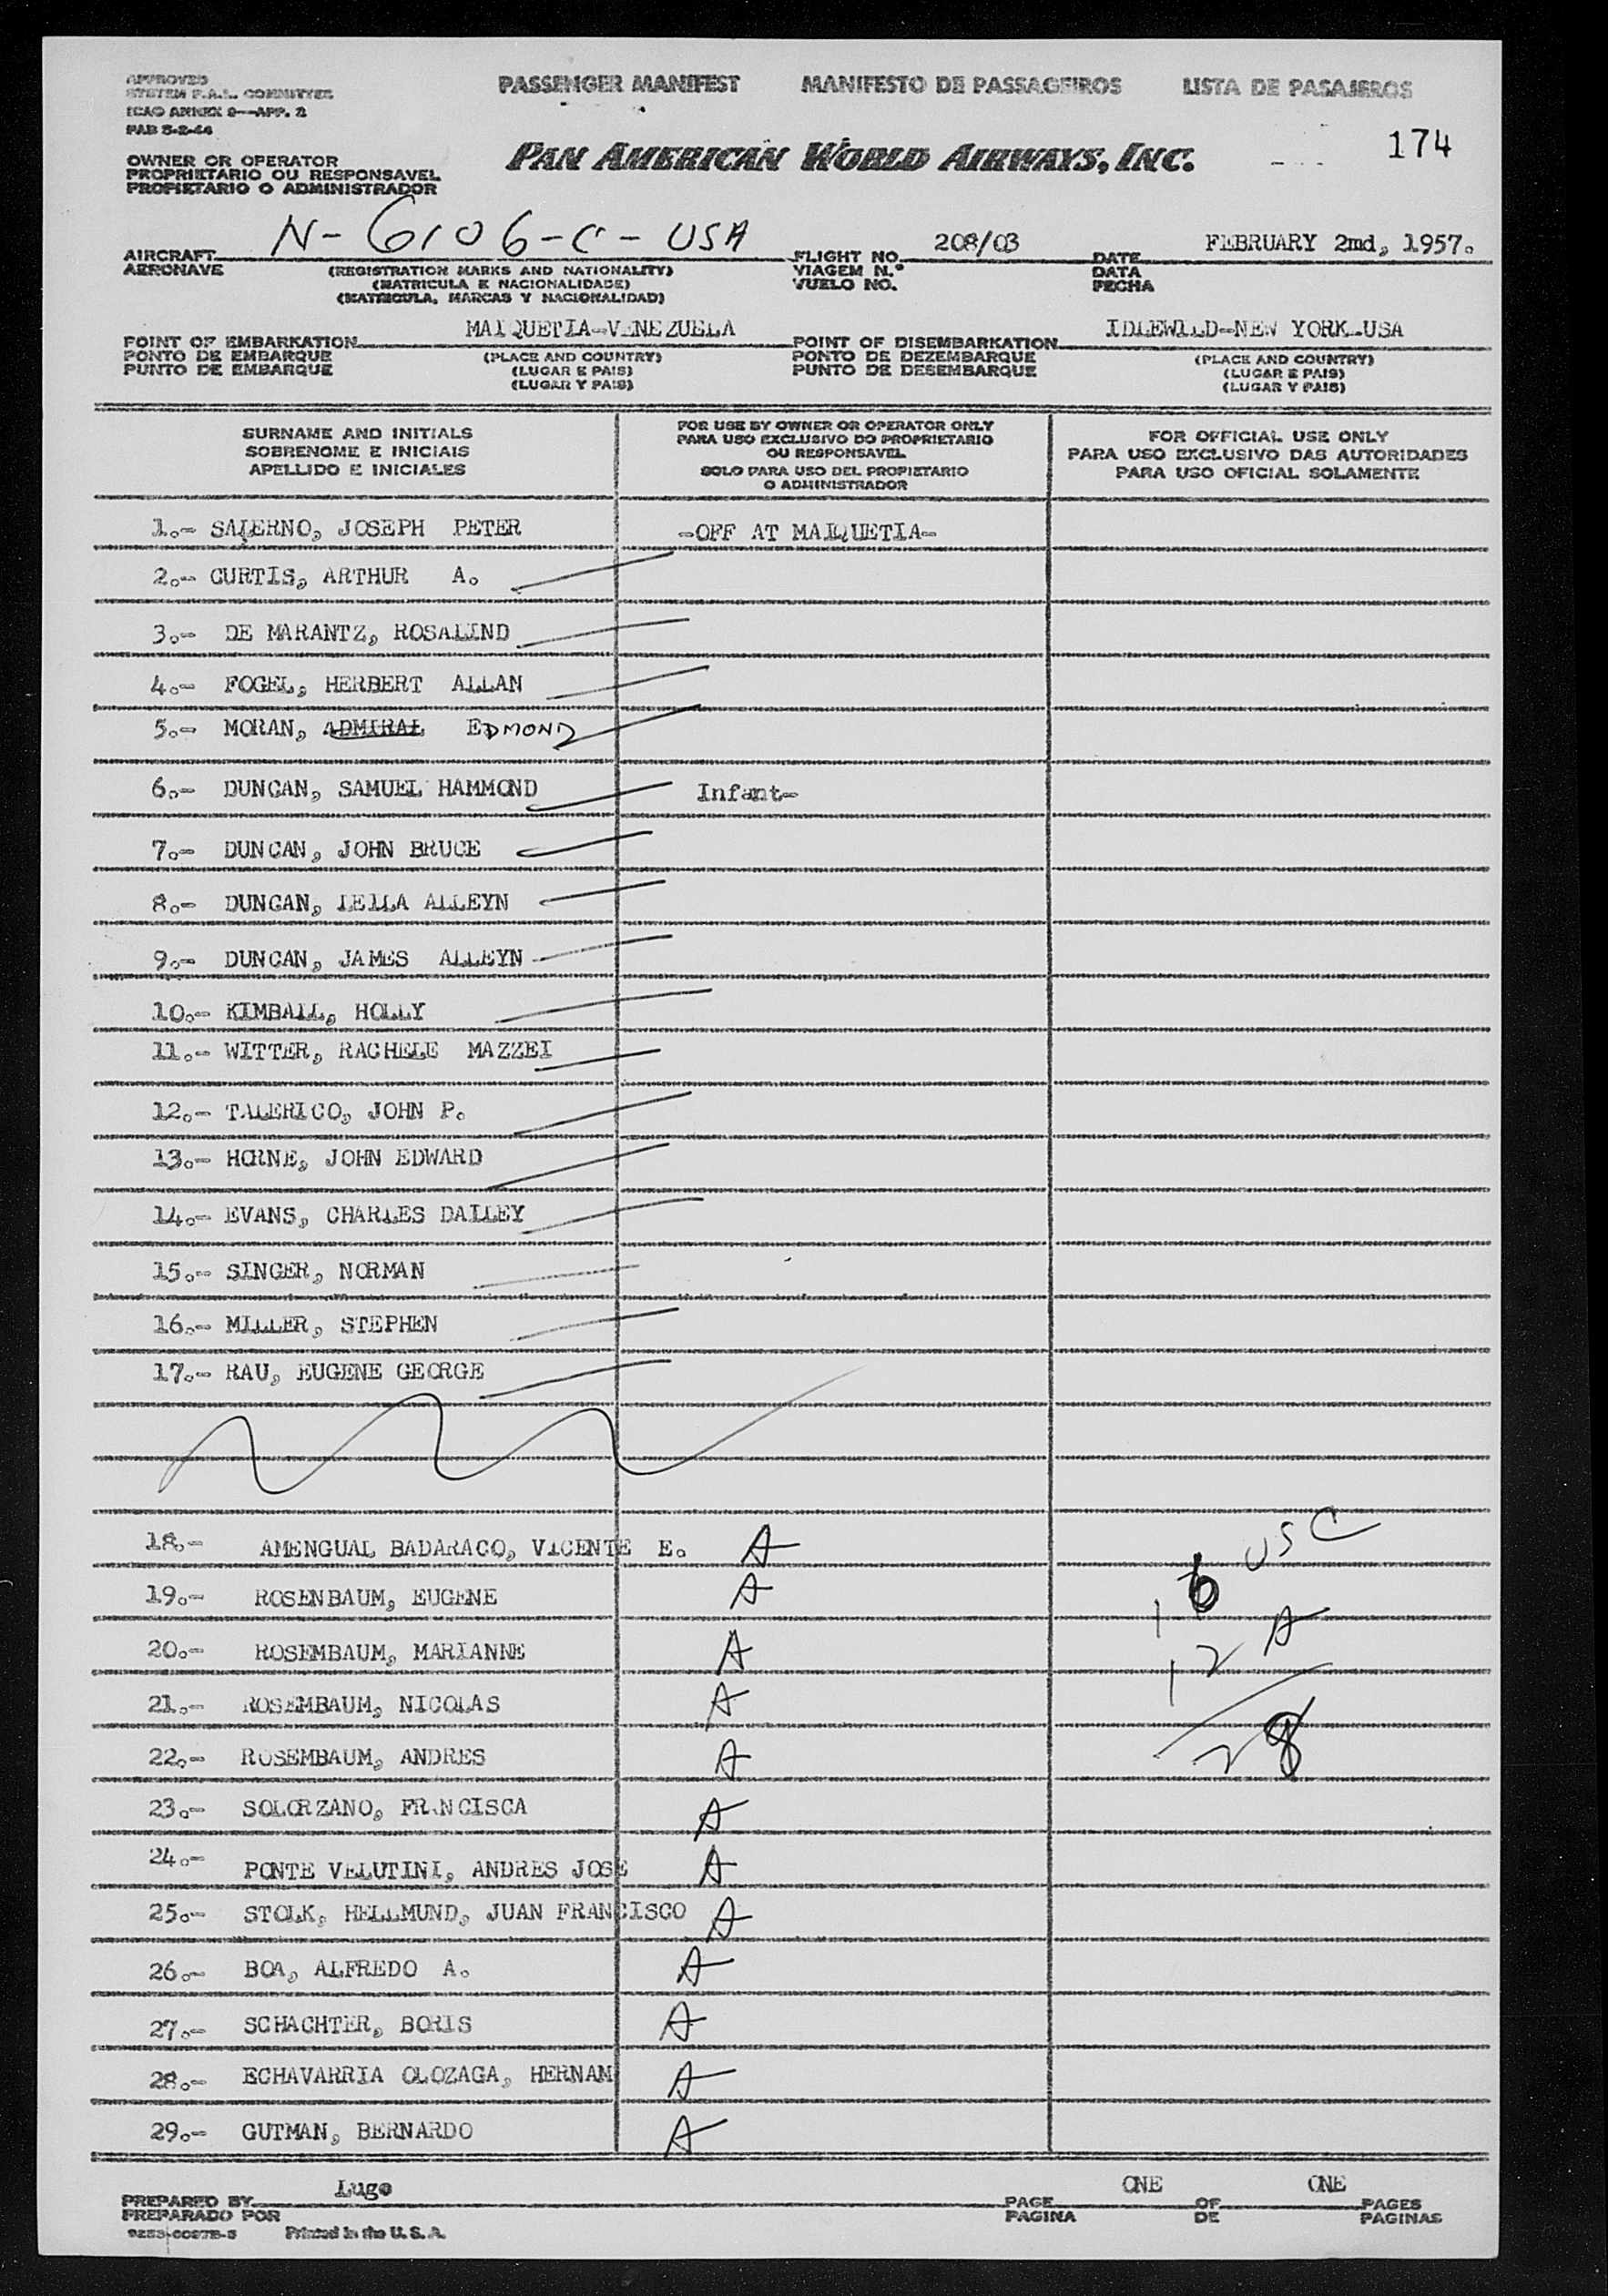 APPROVED
SYSTEM F.A.L. COMMITTEE
ICAO ANNEX 9—APP. 2
PAB 5-2-44
PASSENGER MANIFEST MANIFESTO DE PASSAGEIROS LISTA DE PASAJEROS
174
OWNER OR OPERATOR
PROPRIETARIO OU RESPONSAVEL
PROPIETARIO O ADMINISTRADOR
PAN AMERICAN WORLD AIRWAYS, INC.
AIRCRAFT N-6106-C-USA FLIGHT NO. 208/03 DATE FEBRUARY 2md, 1957.
AERONAVE (REGISTRATION MARKS AND NATIONALITY) VIAGEM N.º DATA
(MATRICULA E NACIONALIDADE) VUELO NO. FECHA
(MATRICULA, MARCAS Y NACIONALIDAD)
POINT OF EMBARKATION MAIQUETIA-VENEZUELA POINT OF DISEMBARKATION IDLEWILD-NEW YORK-USA
PONTO DE EMBARQUE (PLACE AND COUNTRY) PONTO DE DEZEMBARQUE (PLACE AND COUNTRY)
PUNTO DE EMBARQUE (LUGAR E PAIS) PUNTO DE DESEMBARQUE (LUGAR E PAIS)
(LUGAR Y PAIS) (LUGAR Y PAIS)
SURNAME AND INITIALS
SOBRENOME E INICIAIS
APELLIDO E INICIALES
FOR USE BY OWNER OR OPERATOR ONLY
PARA USO EXCLUSIVO DO PROPRIETARIO
OU RESPONSAVEL
SOLO PARA USO DEL PROPIETARIO
O ADMINISTRADOR
FOR OFFICIAL USE ONLY
PARA USO EXCLUSIVO DAS AUTORIDADES
PARA USO OFICIAL SOLAMENTE
1.- SALERNO, JOSEPH PETER -OFF AT MAIQUETIA-
2.- CURTIS, ARTHUR A.
3.- DE MARANTZ, ROSALIND
4.- FOGEL, HERBERT ALLAN
5.- MORAN, ADMIRAL EDMOND
6.- DUNCAN, SAMUEL HAMMOND Infant-
7.- DUNCAN, JOHN BRUCE
8.- DUNCAN, LEILA ALLEYN
9.- DUNCAN, JAMES ALLEYN
10.- KIMBALL, HOLLY
11.- WITTER, RACHELE MAZZEI
12.- TALERICO, JOHN P.
13.- HORNE, JOHN EDWARD
14.- EVANS, CHARLES DAILEY
15.- SINGER, NORMAN
16.- MILLER, STEPHEN
17.- RAU, EUGENE GEORGE
18.- AMENGUAL BADARACO, VICENTE E. A
USC
19.- ROSENBAUM, EUGENE A 16
20.- ROSEMBAUM, MARIANNE A 12 A
21.- ROSEMBAUM, NICOLAS A
22.- ROSEMBAUM, ANDRES A 28
23.- SOLORZANO, FRANCISCA A
24.- PONTE VELUTINI, ANDRES JOSE A
25.- STOLK, HELLMUND, JUAN FRANCISCO A
26.- BOA, ALFREDO A. A
27.- SCHACHTER, BORIS A
28.- ECHAVARRIA OLOZAGA, HERNAM A
29.- GUTMAN, BERNARDO A
PREPARED BY Lugo PAGE ONE OF ONE PAGES
PREPARADO POR PAGINA DE PAGINAS
Printed in the U. S. A.